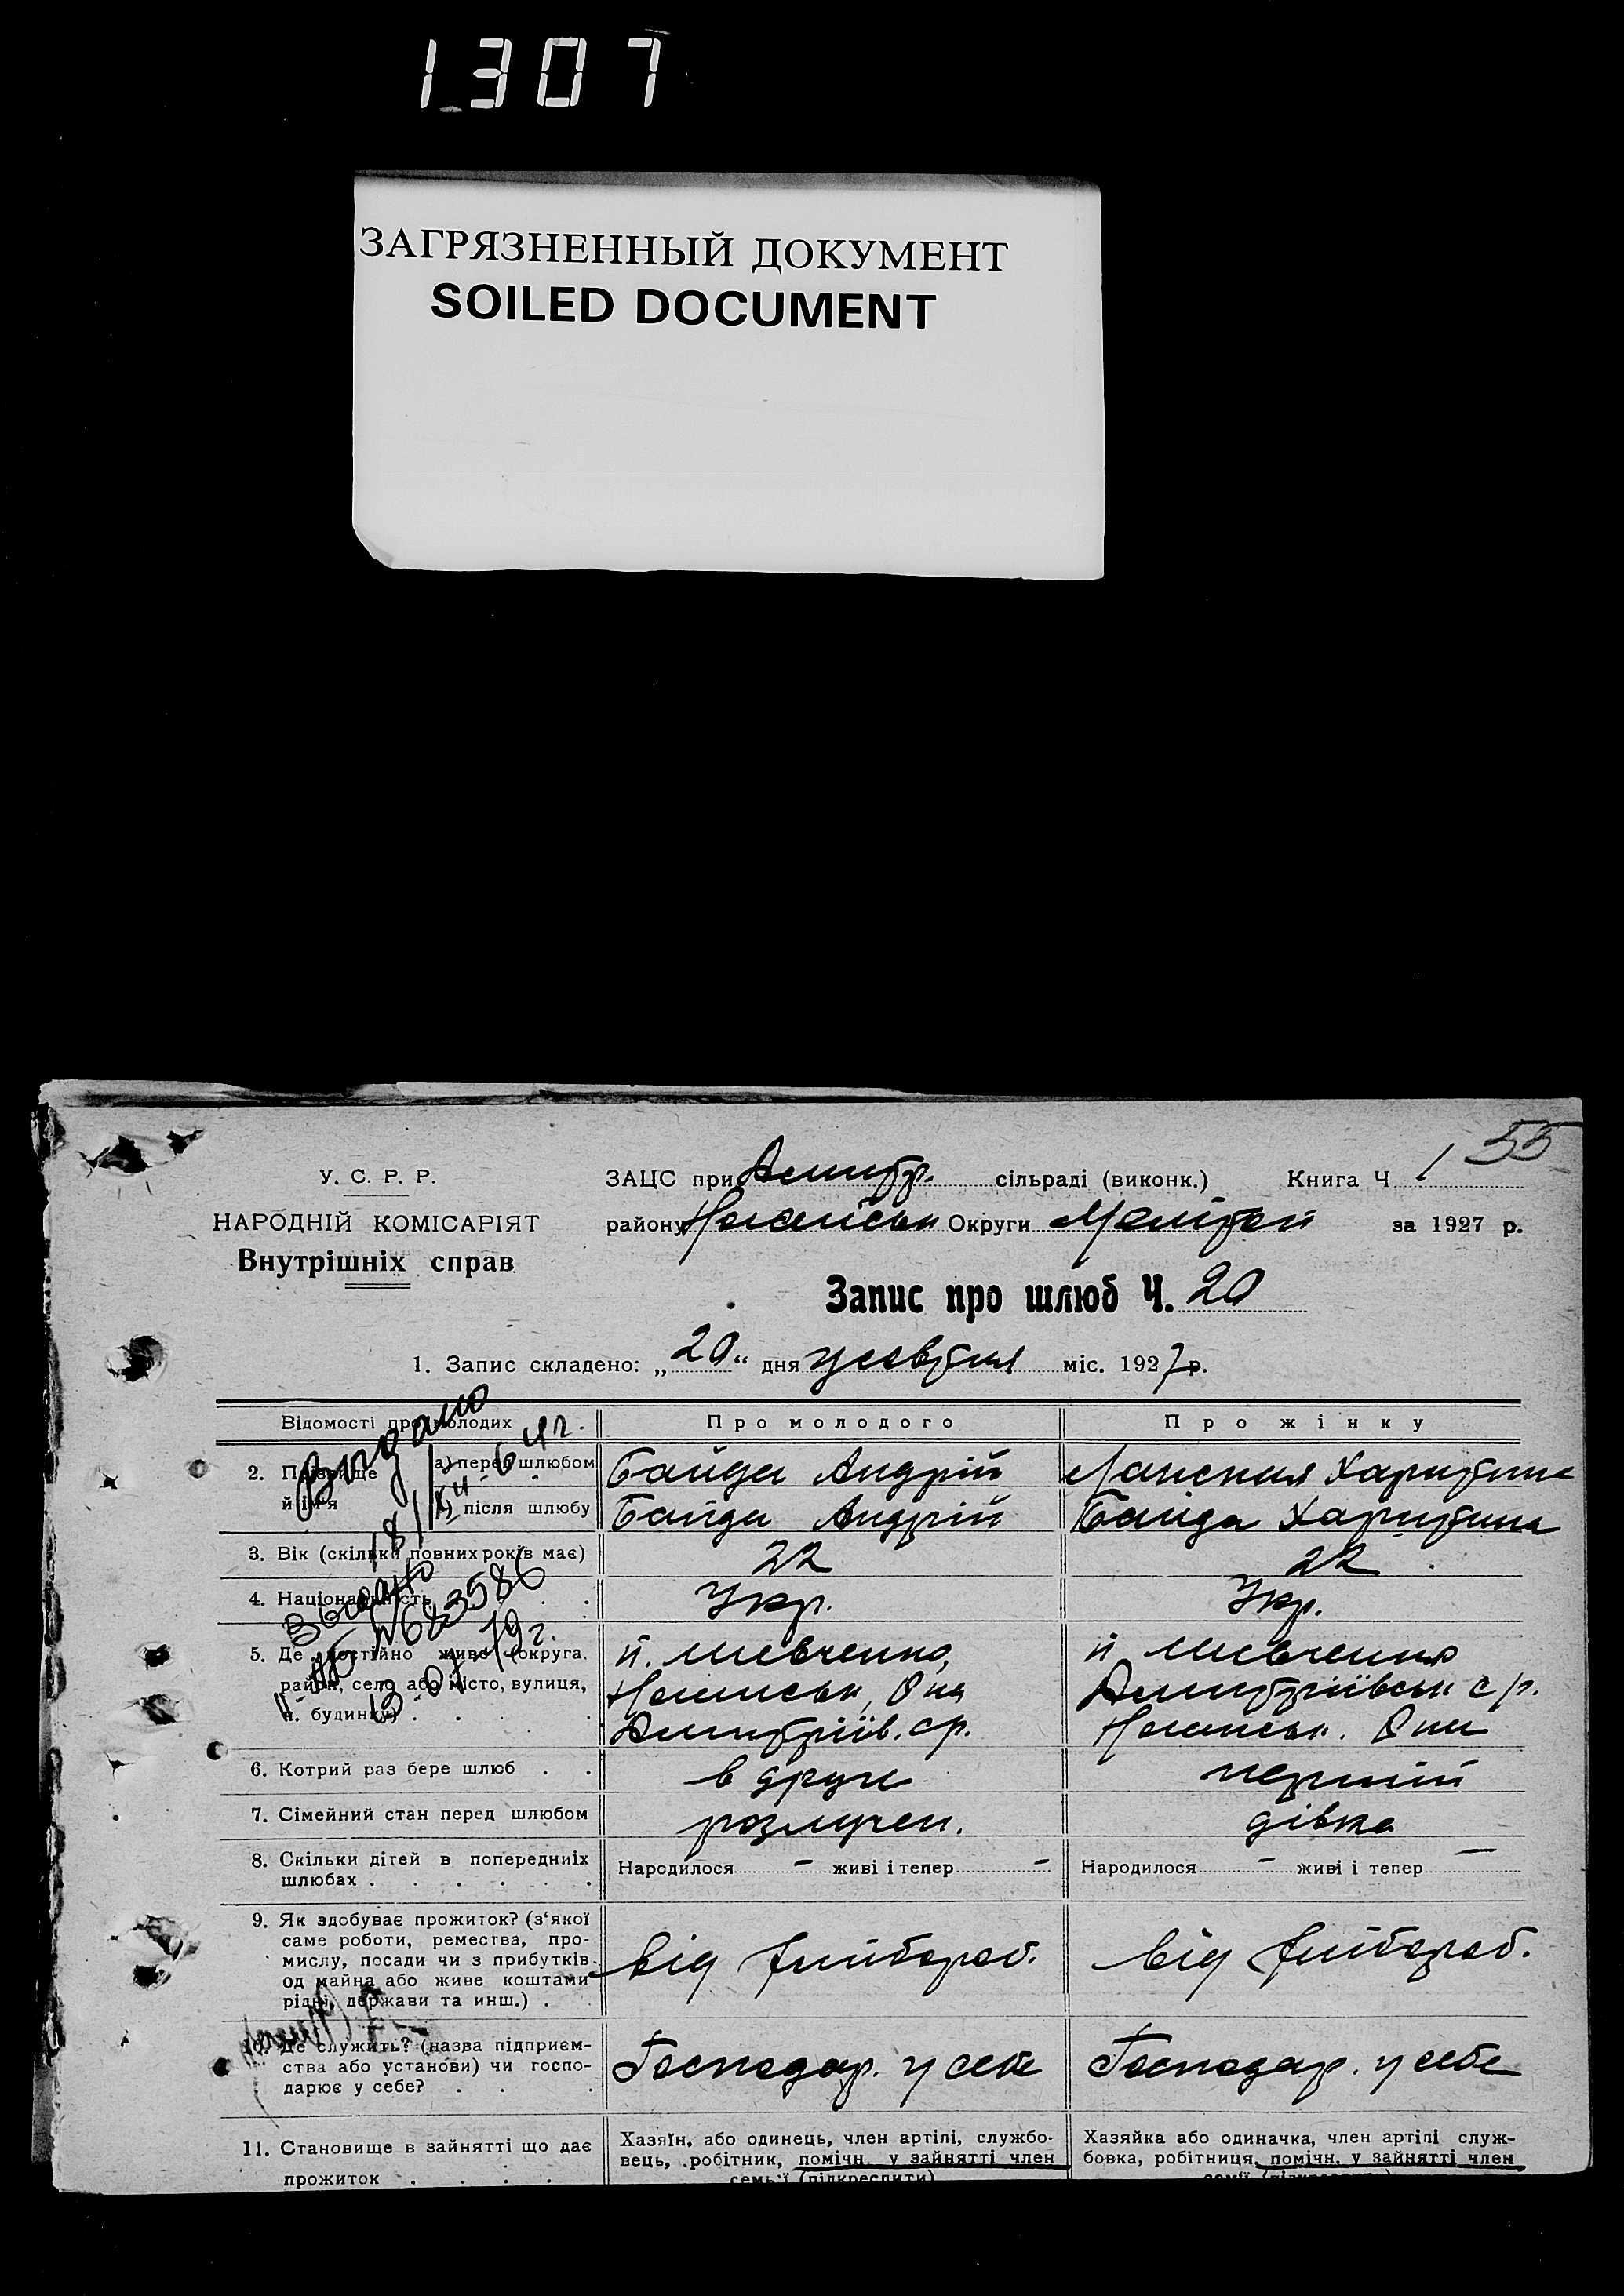 1307
ЗАГРЯЗНЕННЫЙ ДОКУМЕНТ
SOILED DOCUMENT
55
У. С. Р. Р.
НАРОДНІЙ КОМІСАРІЯТ
Внутрішніх справ
ЗАЦС при Дмитр. сільраді (виконк.) Книга Ч 1
району Округи Меліт за 1927 р.
Запис про шлюб Ч. 20
1. Запис складено: „20“ дня жовтня міс. 1927 р.
Відомості про молодих Про молодого Про жінку
2. Прізвище й ім'я а) перед шлюбом Байда Андрій Харитина
б) після шлюбу Байда Андрій Байда Харитина
3. Вік (скільки повних років має) 22 22
4. Національність Укр. Укр.
5. Де постійно живе (округа, район, село або місто, вулиця, ч. будинку)
п. Шевченко,
Дмитріїв. с/р.
п Шевченко
Дмитріївськ с/р.
6. Котрий раз бере шлюб в друге перший
7. Сімейний стан перед шлюбом розлучен. дівка
8. Скільки дітей в попередніх шлюбах Народилося – живі і тепер – Народилося – живі і тепер –
9. Як здобуває прожиток? (з'якої
саме роботи, ремества, про-
мислу, посади чи з прибутків
од майна або живе коштами
рідні, держави та инш.)
від хлібороб. від хлібороб.
10. Де служить? (назва підприєм-
ства або установи) чи госпо-
дарює у себе?
Господар. у себе Господар. у себе
11. Становище в зайнятті що дає
прожиток
Хазяїн, або одинець, член артілі, службо-
вець, робітник, помічн. у зайнятті член
семьї (підкреслити)
Хазяйка або одиначка, член артілі служ-
бовка, робітниця, помічн. у зайнятті член
Видано
18/XII-64г.
Выдано
№ 683586
13-07-79г.